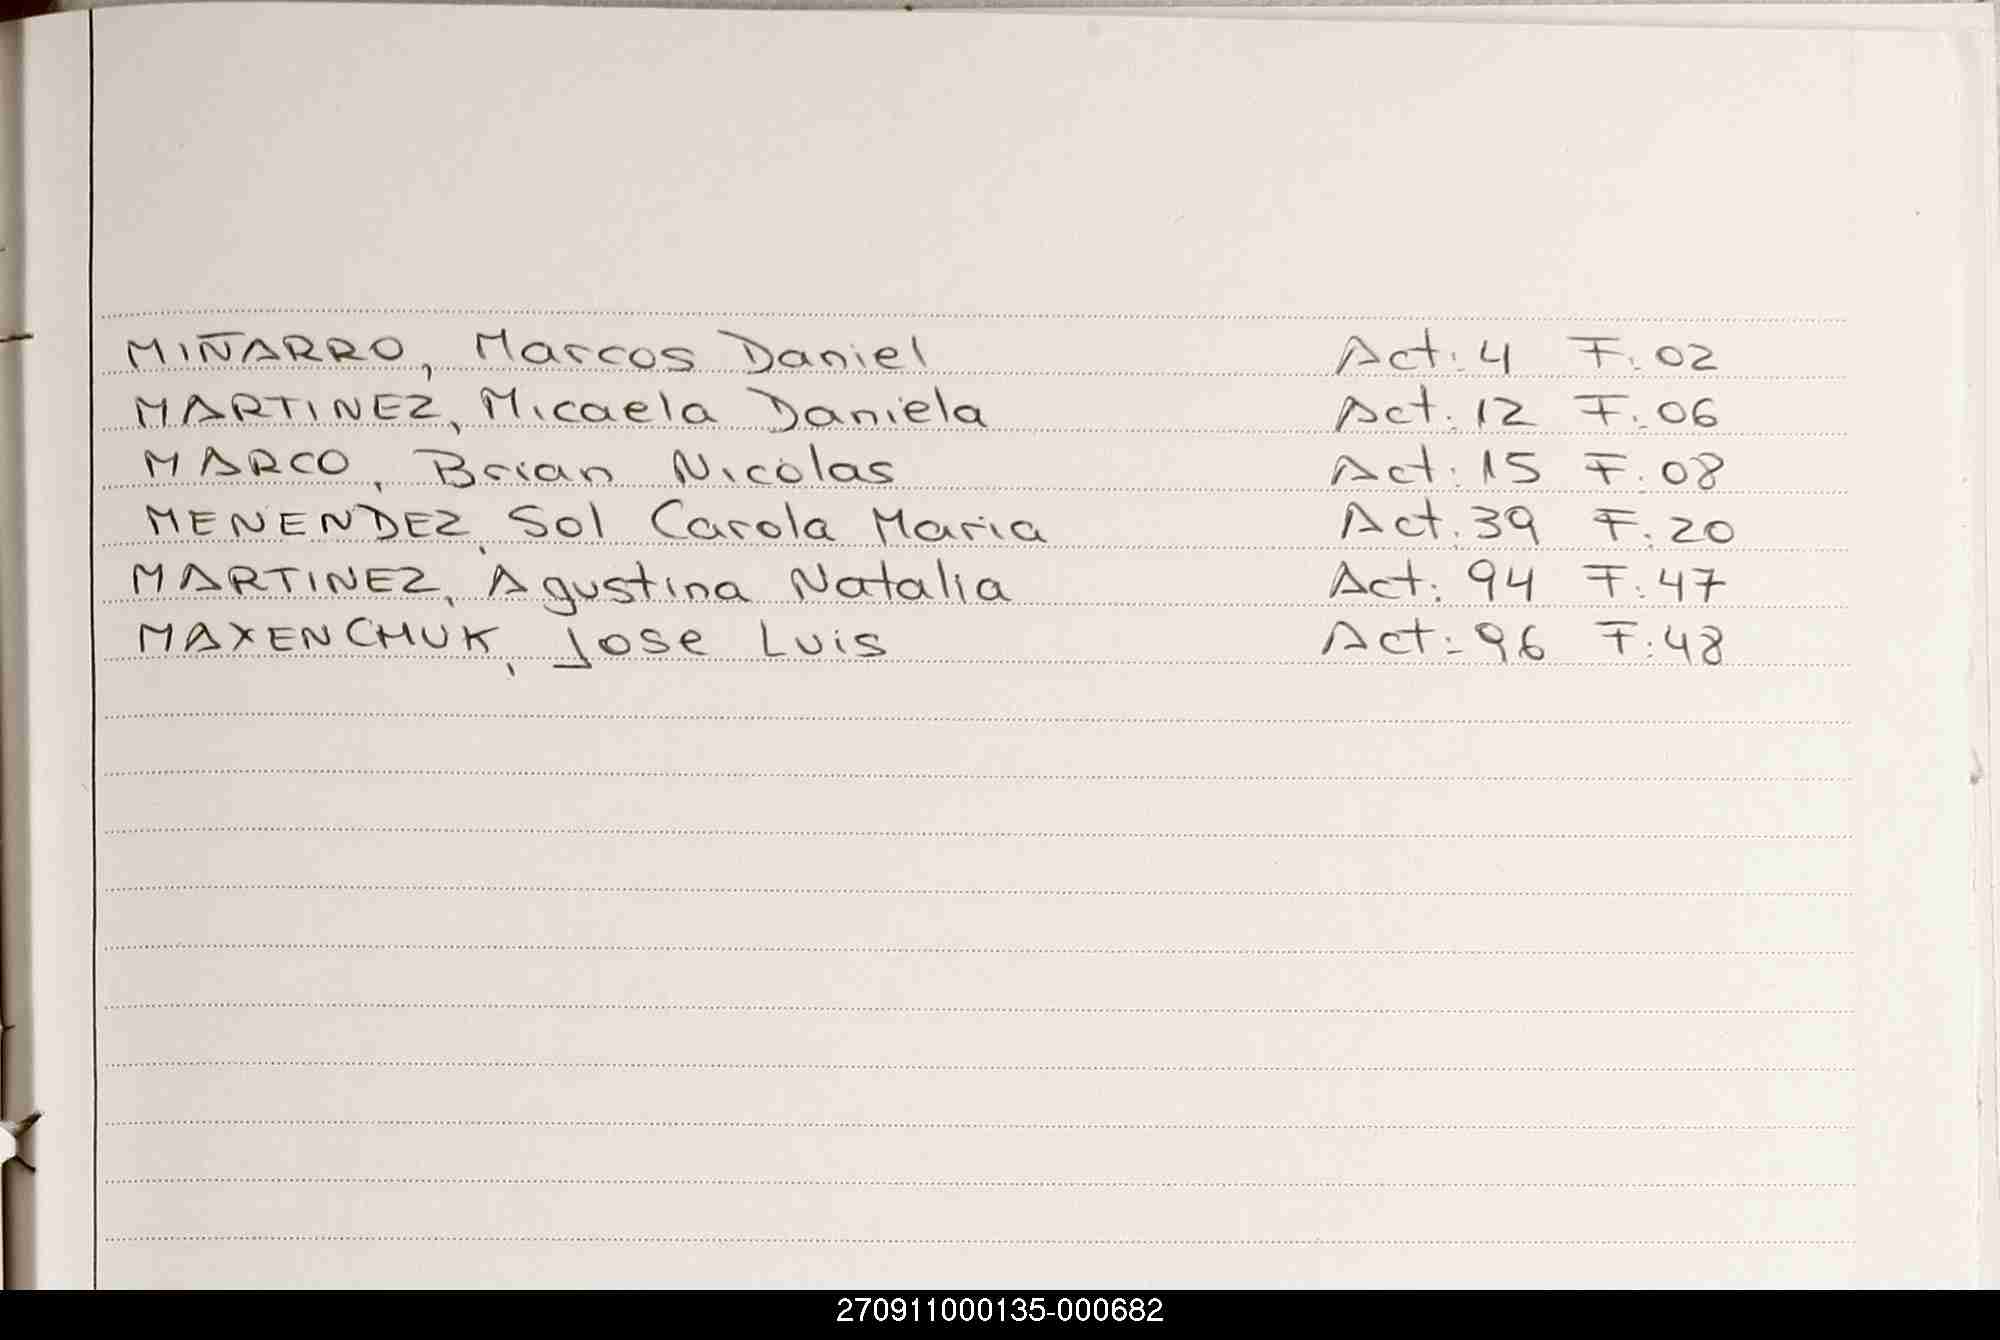 MIÑARRO, Marcos Daniel Act: 4 F: 02
MARTINEZ, Micaela Daniela Act: 12 F: 06
MARCO, Brian Nicolas Act: 15 F: 08
MENENDEZ, Sol Carola Maria Act: 39 F: 20
MARTINEZ, Agustina Natalia Act: 94 F: 47
MAXENCHUK, Jose Luis Act: 96 F: 48
270911000135-000682